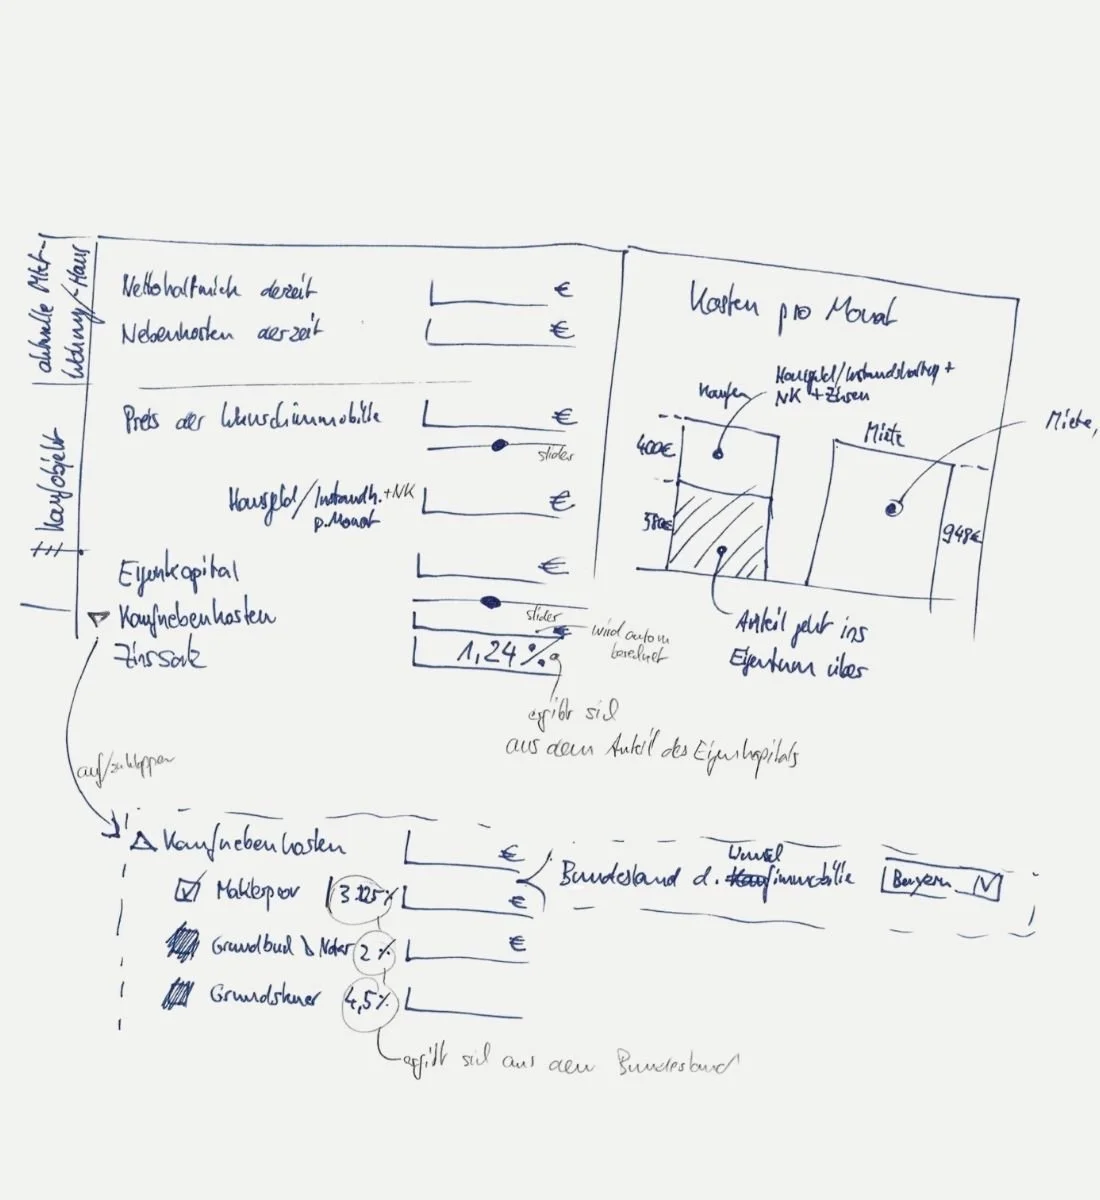 aktuelle Miet-
Wohnung/-Haus
Nettokaltmiete derzeit €
Nebenkosten derzeit €
Kaufobjekt
Preis der Wunschimmobilie €
slider
Hausgeld/Instandh. +NK €
p. Monat
Eigenkapital €
slider
▽ Kaufnebenkosten €
wird autom
berechnet
Zinssatz 1,24%
ergibt sich
aus dem Anteil des Eigenkapitals
Kosten pro Monat
Kaufen
Hausgeld/Instandhaltung +
NK + Zinsen
400€
380€
Miete
Miete,
948€
Anteil geht ins
Eigentum über
auf/zuklappen
△ Kaufnebenkosten €
Maklerprov 3.125% €
Grundbuch & Notar 2% €
Grundsteuer 4,5%
ergibt sich aus dem Bundesland
Wunsch
Bundesland d. immobilie Bayern